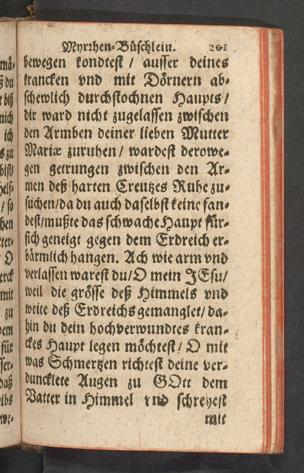 Myrrhen-Büschlein. 201
bewegen kondtest / ausser deines
krancken vnd mit Dörnern ab-
schewlich durchstochnen Haupts /
dir ward nicht zugelassen zwischen
den Armben deiner lieben Mutter
Mariæ zuruhen / wardest derowe-
gen getrungen zwischen den Ar-
men deß harten Creutzes Ruhe zu-
suchen / da du auch daselbst keine fan-
dest / mußte das schwache Haupt für-
sich geneigt gegen dem Erdreich er-
bärmlich hangen. Ach wie arm vnd
verlassen warest du / O mein JEsu /
weil die grösse deß Himmels vnd
weite deß Erdreichs gemanglet / da-
hin du dein hochverwundtes kran-
ckes Haupt legen möchtest / O mit
was Schmertzen richtest deine ver-
duncklete Augen zu GOtt dem
Vatter in Himmel vnd schreyest
mit